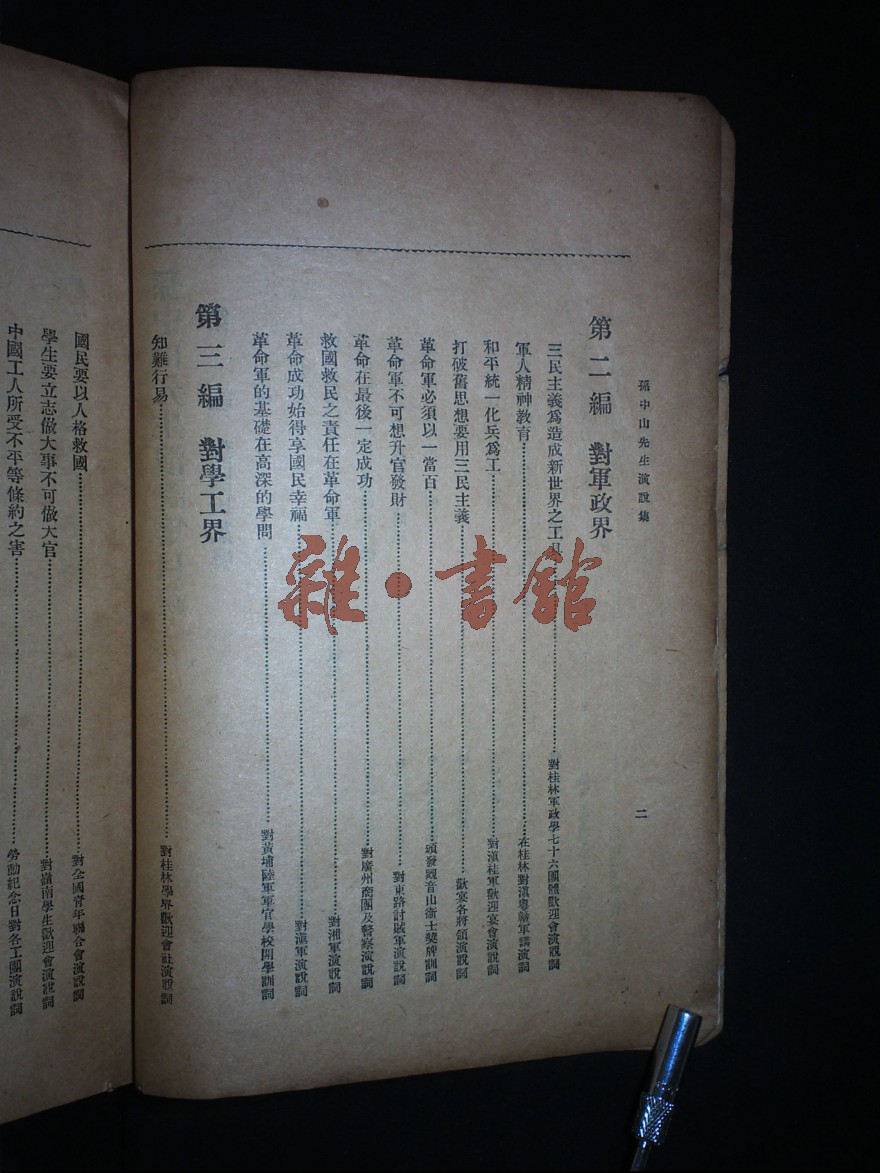 孫中山先生演說集
二
第二編 對軍政界
三民主義爲造成新世界之工具 對桂林軍政學七十六團體歡迎會演說詞
軍人精神教育 在桂林對滇粵贛軍講演詞
和平統一化兵爲工 對滇桂軍歡迎宴會演說詞
打破舊思想要用三民主義 歡宴各將領演說詞
革命軍必須以一當百 頒發觀音山衞士獎牌訓詞
革命軍不可想升官發財 對東路討賊軍演說詞
革命在最後一定成功 對廣州商團及警察演說詞
救國救民之責任在革命軍 對湘軍演說詞
革命成功始得享國民幸福 對滇軍演說詞
革命軍的基礎在高深的學問 對黃埔陸軍軍官學校開學訓詞
第三編 對學工界
知難行易 對桂林學界歡迎會社演說詞
國民要以人格救國 對全國青年聯合會演說詞
學生要立志做大事不可做大官 對嶺南學生歡迎會演說詞
中國工人所受不平等條約之害 勞動紀念日對各工團演說詞
雜·書館